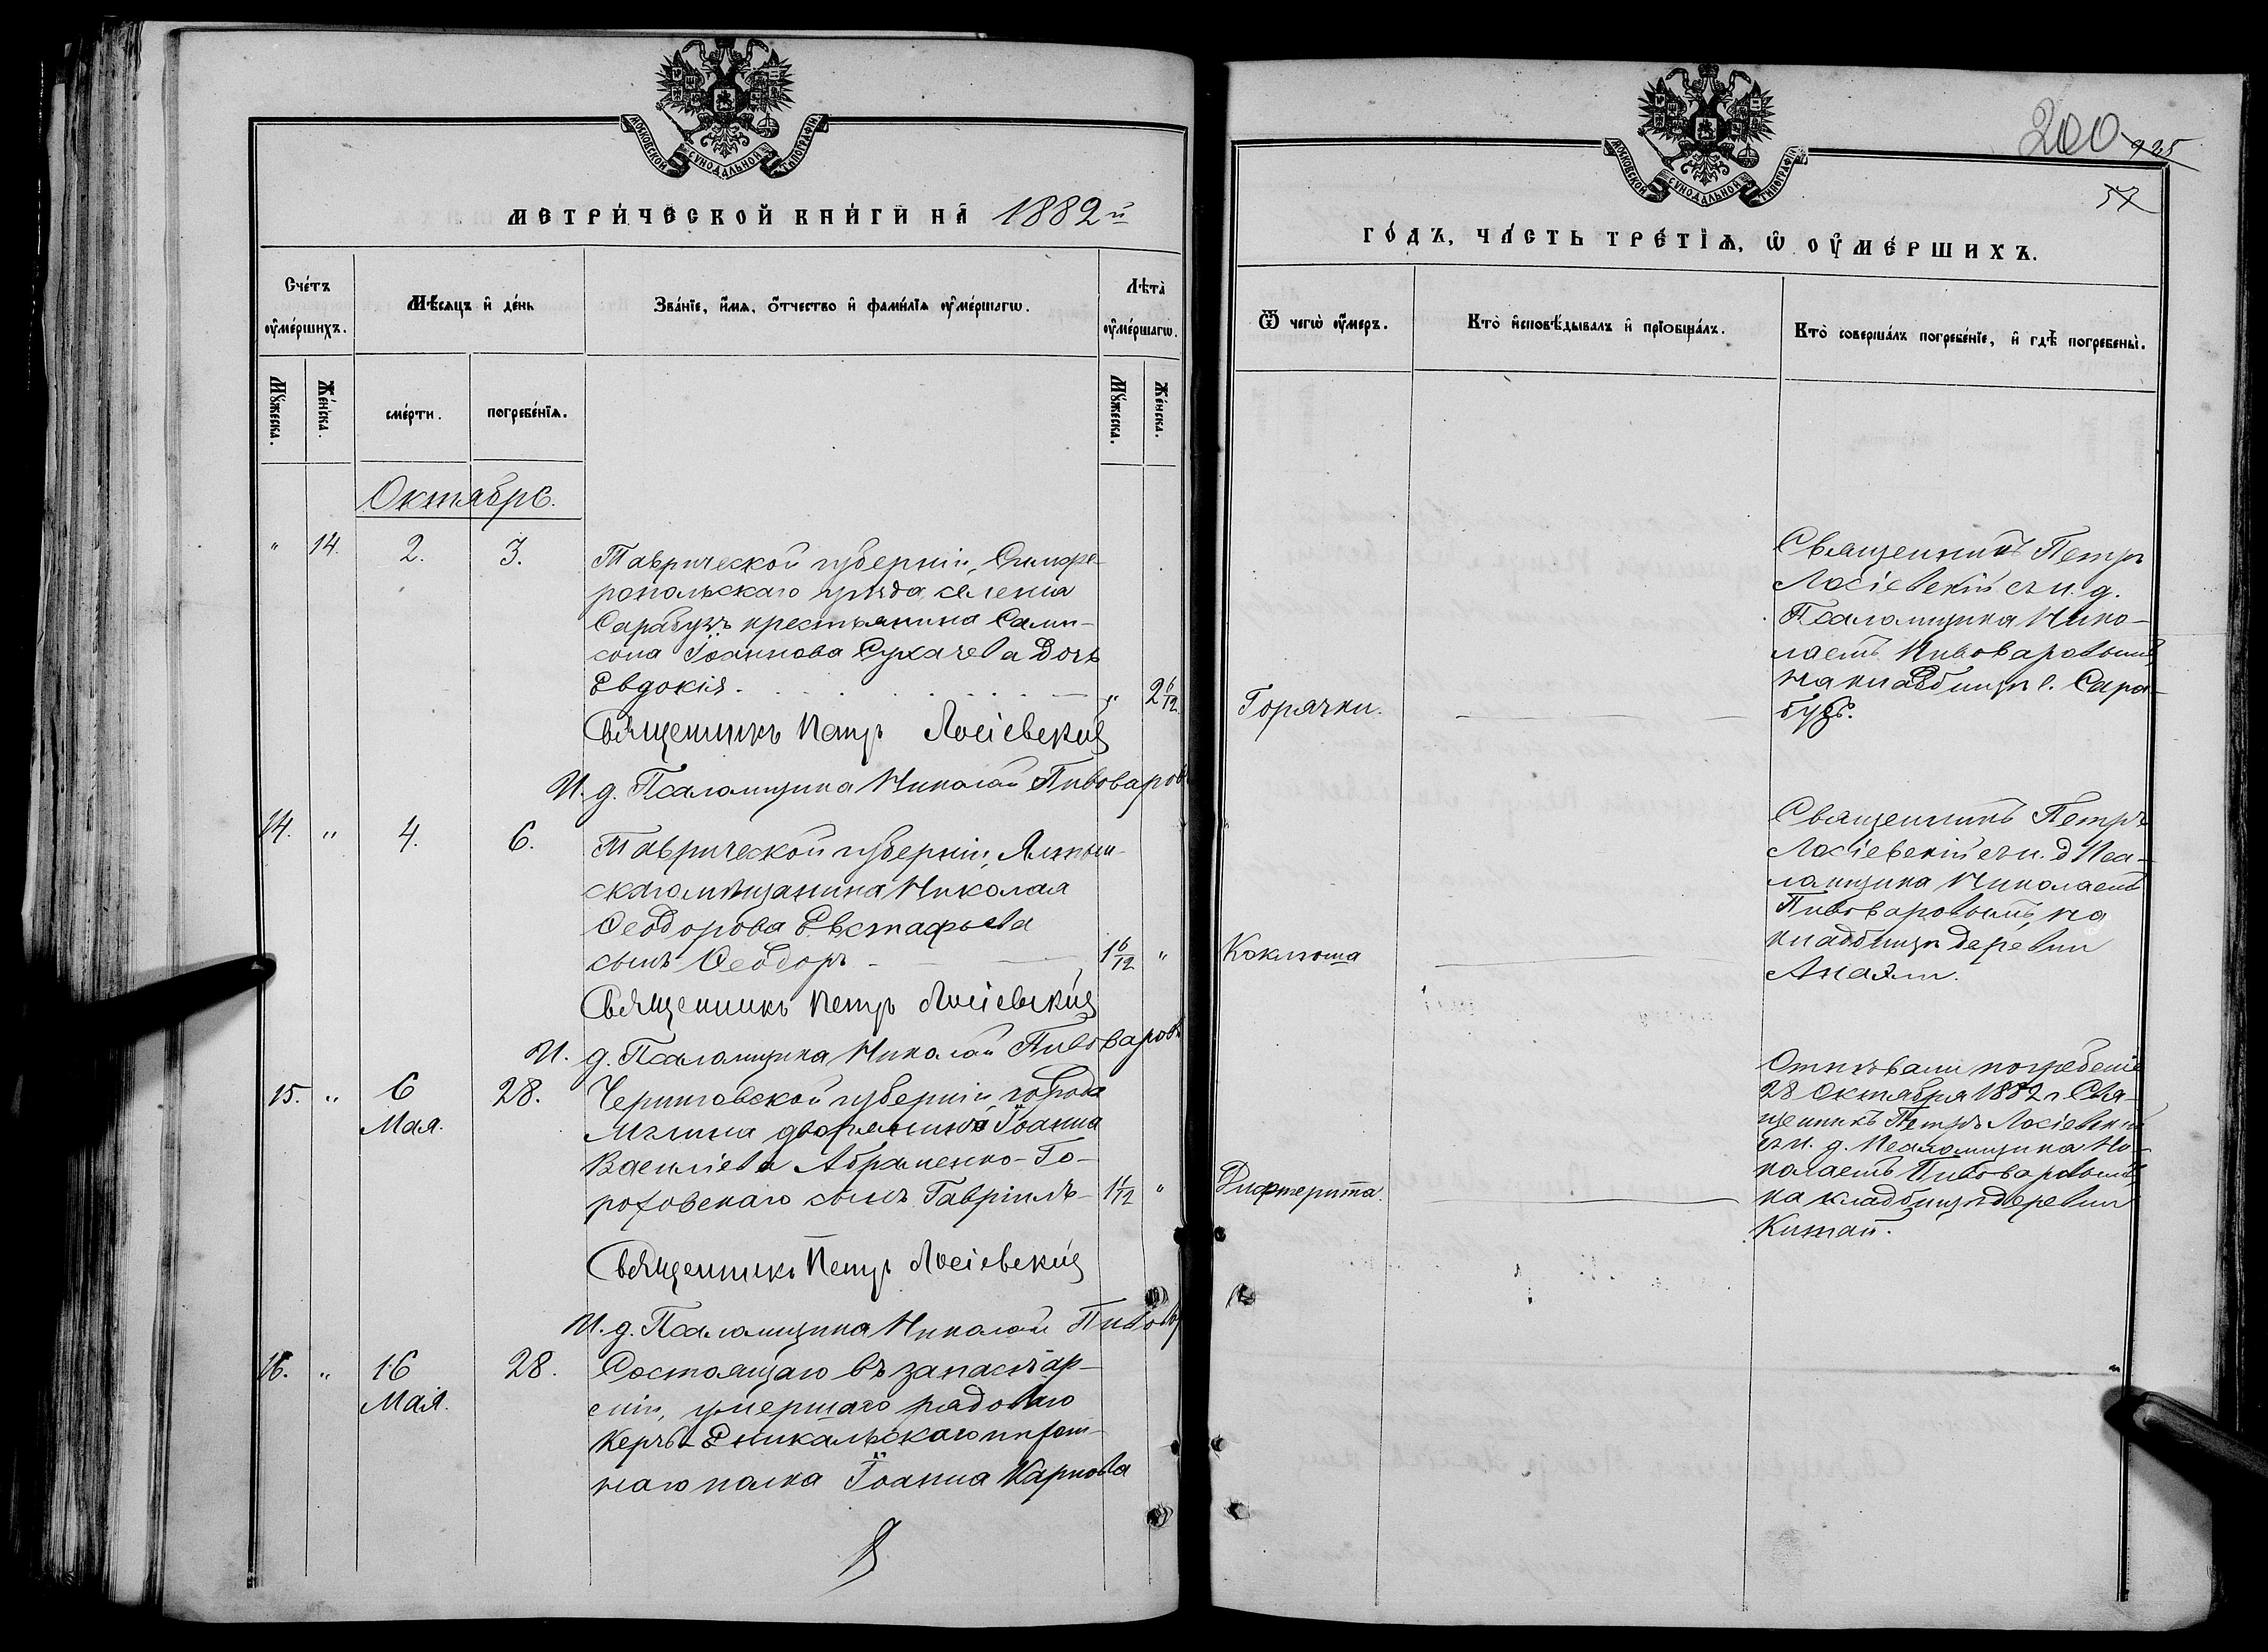 МОСКОВСКОЙ СѴНОДАЛЬНОЙ ТИПОГРАФІИ
МЕТРИ́ЧЕСКОЙ КНИ́ГИ НА̀ 1882й
Сче́тъ ᲂу҆ме́ршихъ.
Мѣ́сяцъ и҆ де́нь
Зва́нїе, и҆́мѧ, ѻ҆́тчество и҆ фами́лїѧ ᲂу҆ме́ршагѡ.
Лѣта̀ ᲂу҆ме́ршагѡ.
Мꙋ́жеска.
Же́нска.
сме́рти.
погребе́нїѧ.
Мꙋ́жеска.
Же́нска.
Октябрь.
" 14. 2. 3.
Таврической губерніи, Симфе-
ропольскаго уѣзда, селенія
Сарабузъ крестьянина Самп-
сона Іоаннова Сухачева дочь
Евдокія. " 2 6/12.
Священникъ Петръ Лосіевскій
И. д. Псаломщика Николай Пивоваровъ
14. " 4. 6.
Таврической губерніи, Ялтин-
скаго мѣщанина Николая
Ѳеодорова Евстафьева
сынъ Ѳеодоръ 1 6/12 "
Священникъ Петръ Лосіевскій
И. д. Псаломщика Николай Пивоваровъ
15. " 6 28.
Мая.
Черниговской губерніи города
Мглина дворянина Іоанна
Василіева Абраменко-Го-
роховскаго сынъ Гавріилъ 1 1/12 "
Священникъ Петръ Лосіевскій
И. д. Псаломщика Николай Пивов
16. " 16 28.
Мая.
Состоящаго въ запасѣ ар-
міи, умершаго рядоваго
Керчь-Еникальскаго пѣхот-
наго полка Іоанна Карпова
МОСКОВСКОЙ СѴНОДАЛЬНОЙ ТИПОГРАФІИ
200 925
57
ГО́ДЪ, ЧА́СТЬ ТРЕ́ТЇѦ, Ѡ҆ ОУ҆МЕ́РШИХЪ.
Ѿ чегѡ̀ ᲂу҆́меръ.
Кто̀ и҆сповѣ́дывалъ и҆ прїобща́лъ.
Кто̀ соверша́лъ погребе́нїе, и҆ гдѣ̀ погребены̀.
Священникъ Петръ
Лосіевскій съ и. д.
Псаломщика Нико-
лаемъ Пивоваровымъ,
на кладбищѣ с. Сара-
бузъ.
Горячки.
Священникъ Петръ
Лосіевскій съ и. д. Пса-
ломщика Николаемъ
Пивоваровымъ, на
кладбищѣ деревни
Аналы.
Коклюша
Отпѣвали погребеніе
28 Октября 1882 г. Свя-
щенникъ Петръ Лосіевскій
съ и. д. Псаломщика Ни-
колаемъ Пивоваровымъ,
на кладбищѣ деревни
Китай.
Дифтерита.